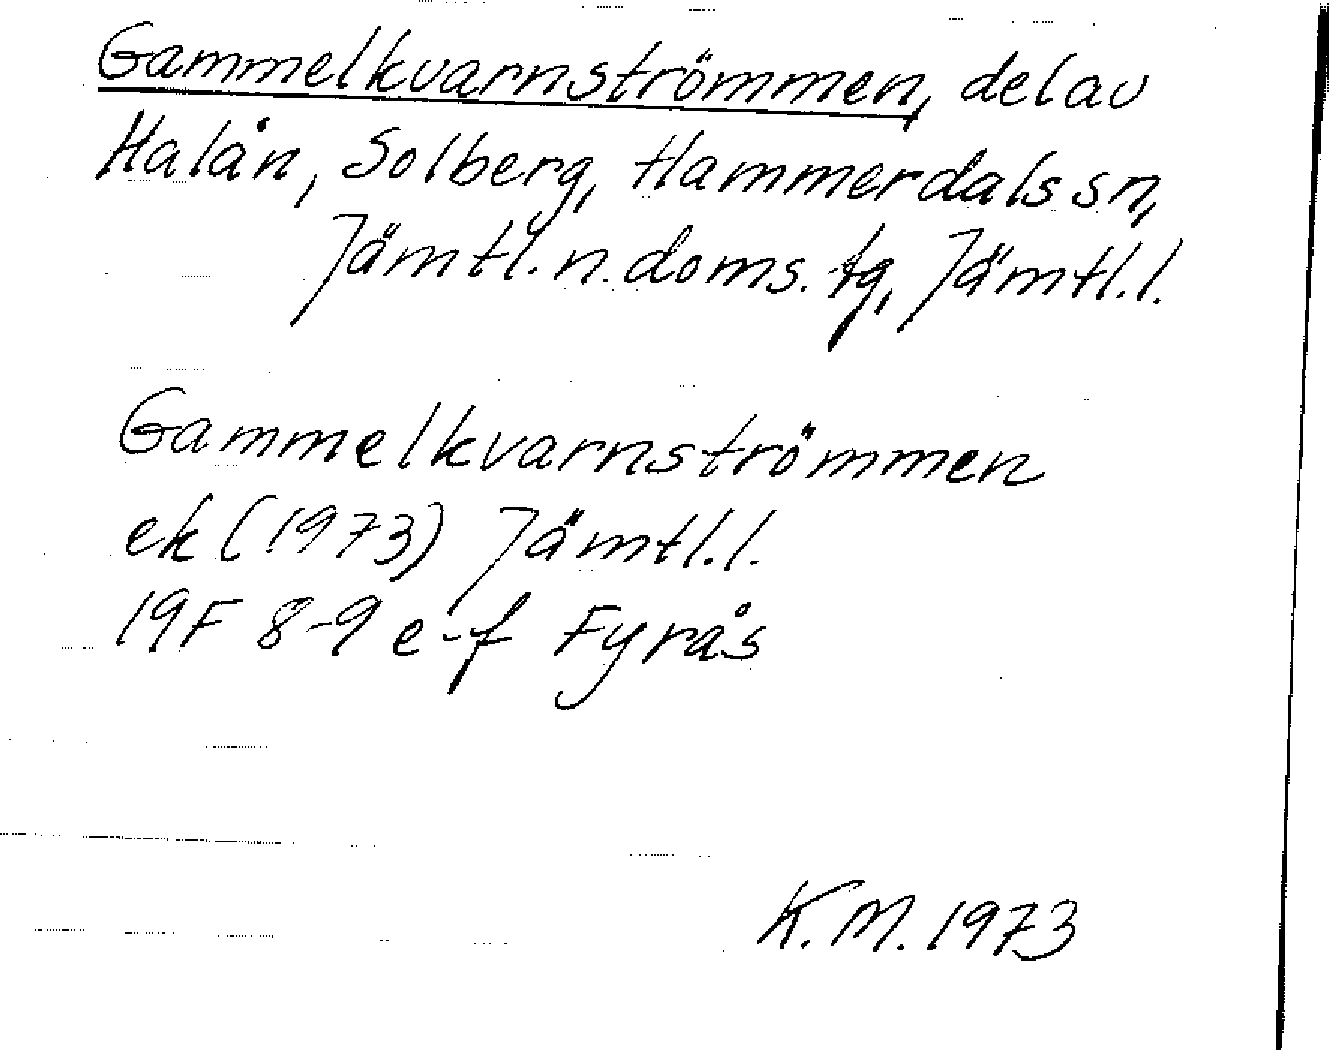 Gammelkvarnströmmen, del av
Halån, Solberg, Hammerdals sn,
Jämtl. n. doms. tg, Jämtl. l.
Gammelkvarnströmmen
ek (1973) Jämtl. l.
19F 8-9 e-f Fyrås
K. M. 1973